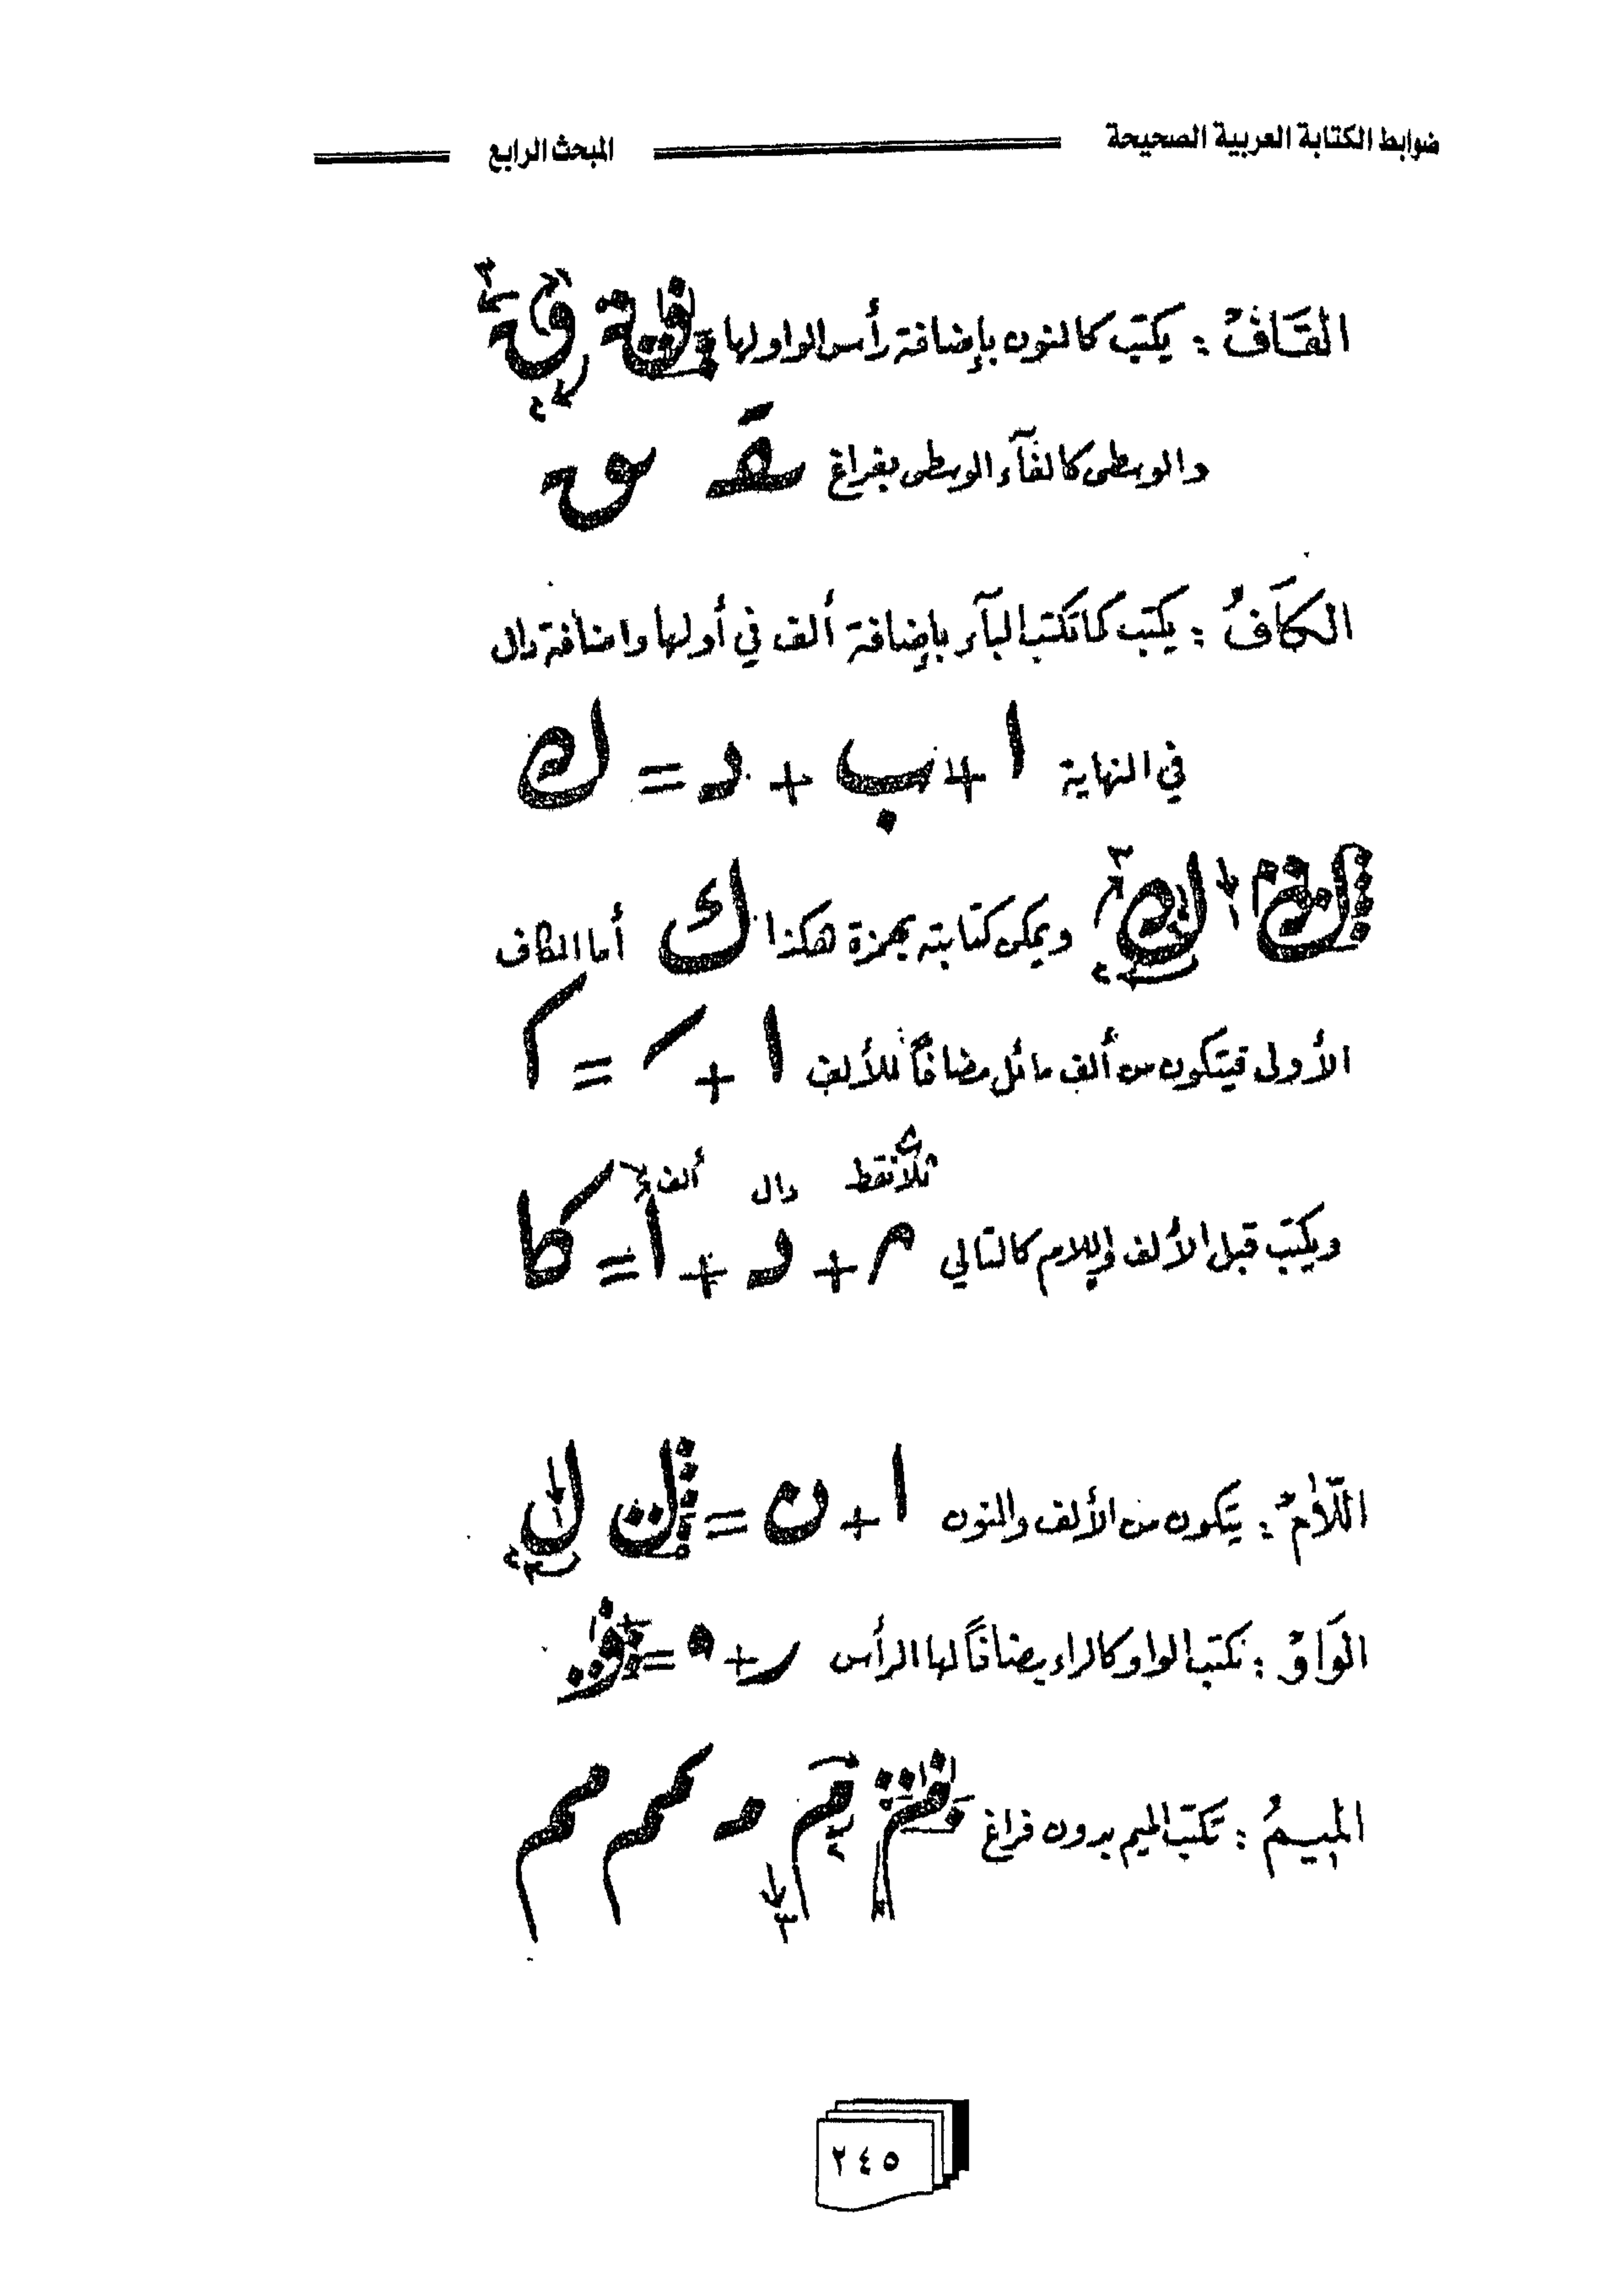 ضوابط الكتابة العربية الصحيحة المبحث الرابع
القَافْ : يكتب كالنون بإضافة رأس الواو لها
والوسطى كالفآء الوسطى بفراغ سقـ سق
الكَافُ : يكتب كما تكتب البآء بإضافة ألف في أولها واضافة دال
في النهاية ا + ب + د = ك
ك ك ويمكن كتابته بهمزة هكذا ك أما الكاف
الأولى فيتكون من ألف مائل مضافاً للألف ا + =
ثلاث نقط دال ألف
ويكتب قبل الألف واللام كالتالي + د + ا = كا
اللّامْ : يتكون من الألف والنون ا + ن = ل ل
الوَاوْ : نكتب الواو كالراء مضافاً لها الرأس ر + ه = و
الميـمُ : تكتب الميم بدون فراغ
٢٤٥